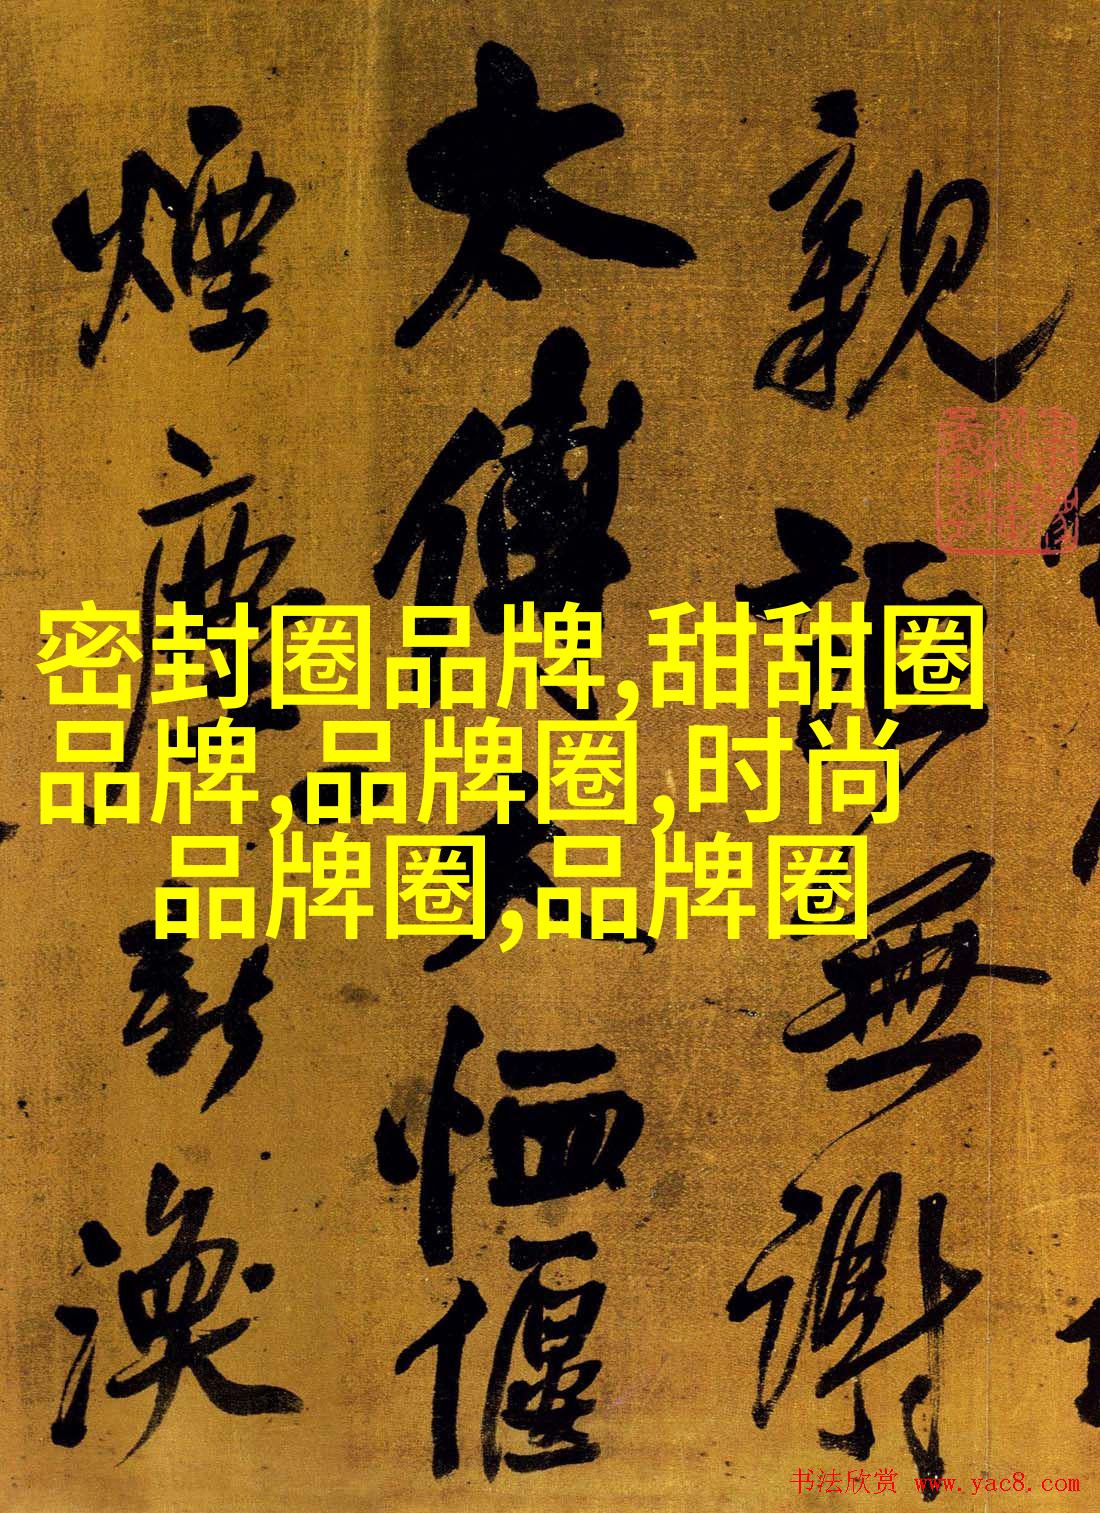 親
太傅
恤偃
無謝
煙塵新
渙
密封圈品牌,甜甜圈
品牌,品牌圈,时尚
品牌圈,品牌圈
书法欣赏 www.yac8.com